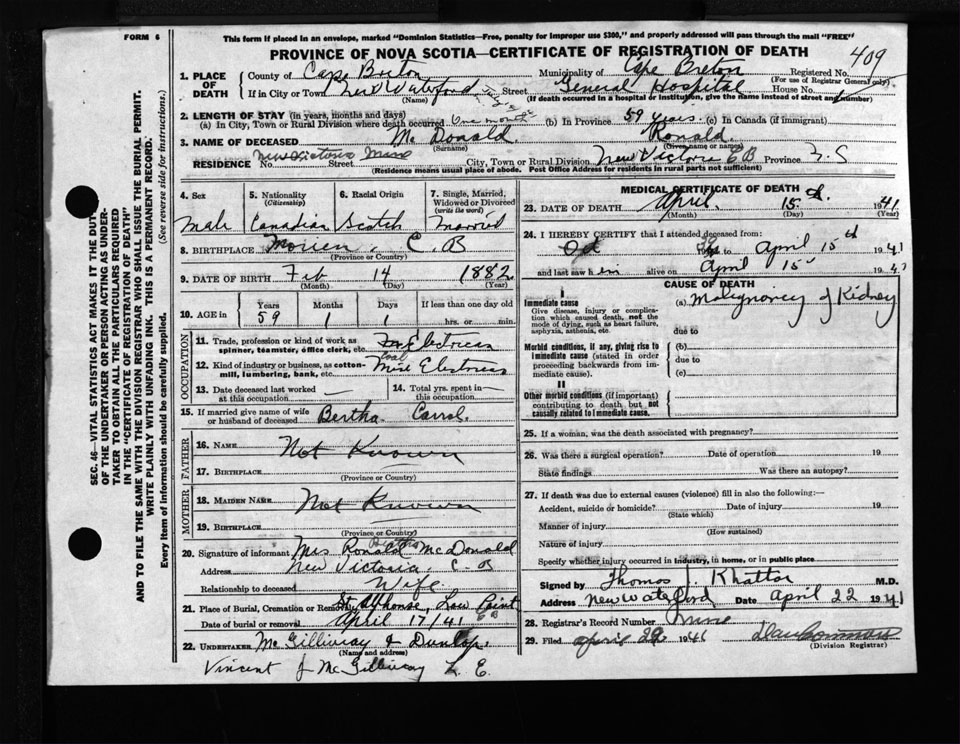 FORM 6
This form if placed in an envelope, marked "Dominion Statistics—Free, penalty for improper use $300," and properly addressed will pass through the mail "FREE"
PROVINCE OF NOVA SCOTIA—CERTIFICATE OF REGISTRATION OF DEATH
409
1. PLACE OF DEATH
County of Cape Breton Municipality of Cape Breton Registered No.
(For use of Registrar General only)
If in City or Town New Waterford Street General Hospital House No.
(Name) (If death occurred in a hospital or institution, give the name instead of street and number)
2. LENGTH OF STAY (in years, months and days)
(a) In City, Town or Rural Division where death occurred One month (b) In Province 59 years (c) In Canada (if immigrant)
3. NAME OF DECEASED Mc Donald Ronald
(Surname) (Given name or names)
RESIDENCE No. New Victoria Mines Street City, Town or Rural Division New Victoria C B Province N. S
(Residence means usual place of abode. Post Office Address for residents in rural parts not sufficient)
4. Sex
Male
5. Nationality (Citizenship)
Canadian
6. Racial Origin
Scotch
7. Single, Married, Widowed or Divorced (write the word)
Married
8. BIRTHPLACE Morien, C. B
(Province or Country)
9. DATE OF BIRTH Feb 14 1882
(Month) (Day) (Year)
10. AGE in Years Months Days If less than one day old
59 1 1 hrs. or min.
OCCUPATION
11. Trade, profession or kind of work as spinner, teamster, office clerk, etc. Electrician
12. Kind of industry or business, as cotton-mill, lumbering, bank, etc. Coal Mine
13. Date deceased last worked at this occupation —
14. Total yrs. spent in this occupation —
15. If married give name of wife or husband of deceased Bertha Carrol
FATHER
16. NAME Not Known
17. BIRTHPLACE
(Province or Country)
MOTHER
18. MAIDEN NAME Not Known
19. BIRTHPLACE
(Province or Country)
20. Signature of informant Mrs Ronald McDonald
Bertha
Address New Victoria, C. B
Relationship to deceased Wife
21. Place of Burial, Cremation or Removal St Alphonse, Low Point
Date of burial or removal April 17/41 CB
22. UNDERTAKER Mc Gillivray & Dunlap
(Name and address)
Vincent J McGillivray L. E.
MEDICAL CERTIFICATE OF DEATH
23. DATE OF DEATH April 15 1941
(Month) (Day) (Year)
24. I HEREBY CERTIFY that I attended deceased from:
to April 15 1941
and last saw him alive on April 15 1941
CAUSE OF DEATH
I
Immediate cause
Give disease, injury or complication which caused death, not the mode of dying, such as heart failure, asphyxia, asthenia, etc.
(a) Malignancy of Kidney
due to
Morbid conditions, if any, giving rise to immediate cause (stated in order proceeding backwards from immediate cause).
(b)
due to
(c)
II
Other morbid conditions (if important) contributing to death but not causally related to immediate cause.
25. If a woman, was the death associated with pregnancy?
26. Was there a surgical operation? Date of operation 19
State findings Was there an autopsy?
27. If death was due to external causes (violence) fill in also the following:—
Accident, suicide or homicide? Date of injury 19
(State which)
Manner of injury
(How sustained)
Nature of injury
Specify whether injury occurred in industry, in home, or in public place
Signed by Thomas J. Khattar M.D.
Address New Waterford Date April 22 1941
28. Registrar's Record Number
29. Filed April 1941
(Division Registrar)
SEC. 46—VITAL STATISTICS ACT MAKES IT THE DUTY
OF THE UNDERTAKER OR PERSON ACTING AS UNDER-
TAKER TO OBTAIN ALL THE PARTICULARS REQUIRED
IN THE "CERTIFICATE OF REGISTRATION OF DEATH"
AND TO FILE THE SAME WITH THE DIVISION REGISTRAR WHO SHALL ISSUE THE BURIAL PERMIT.
WRITE PLAINLY WITH UNFADING INK. THIS IS A PERMANENT RECORD.
Every item of information should be carefully supplied. (See reverse side for instructions.)